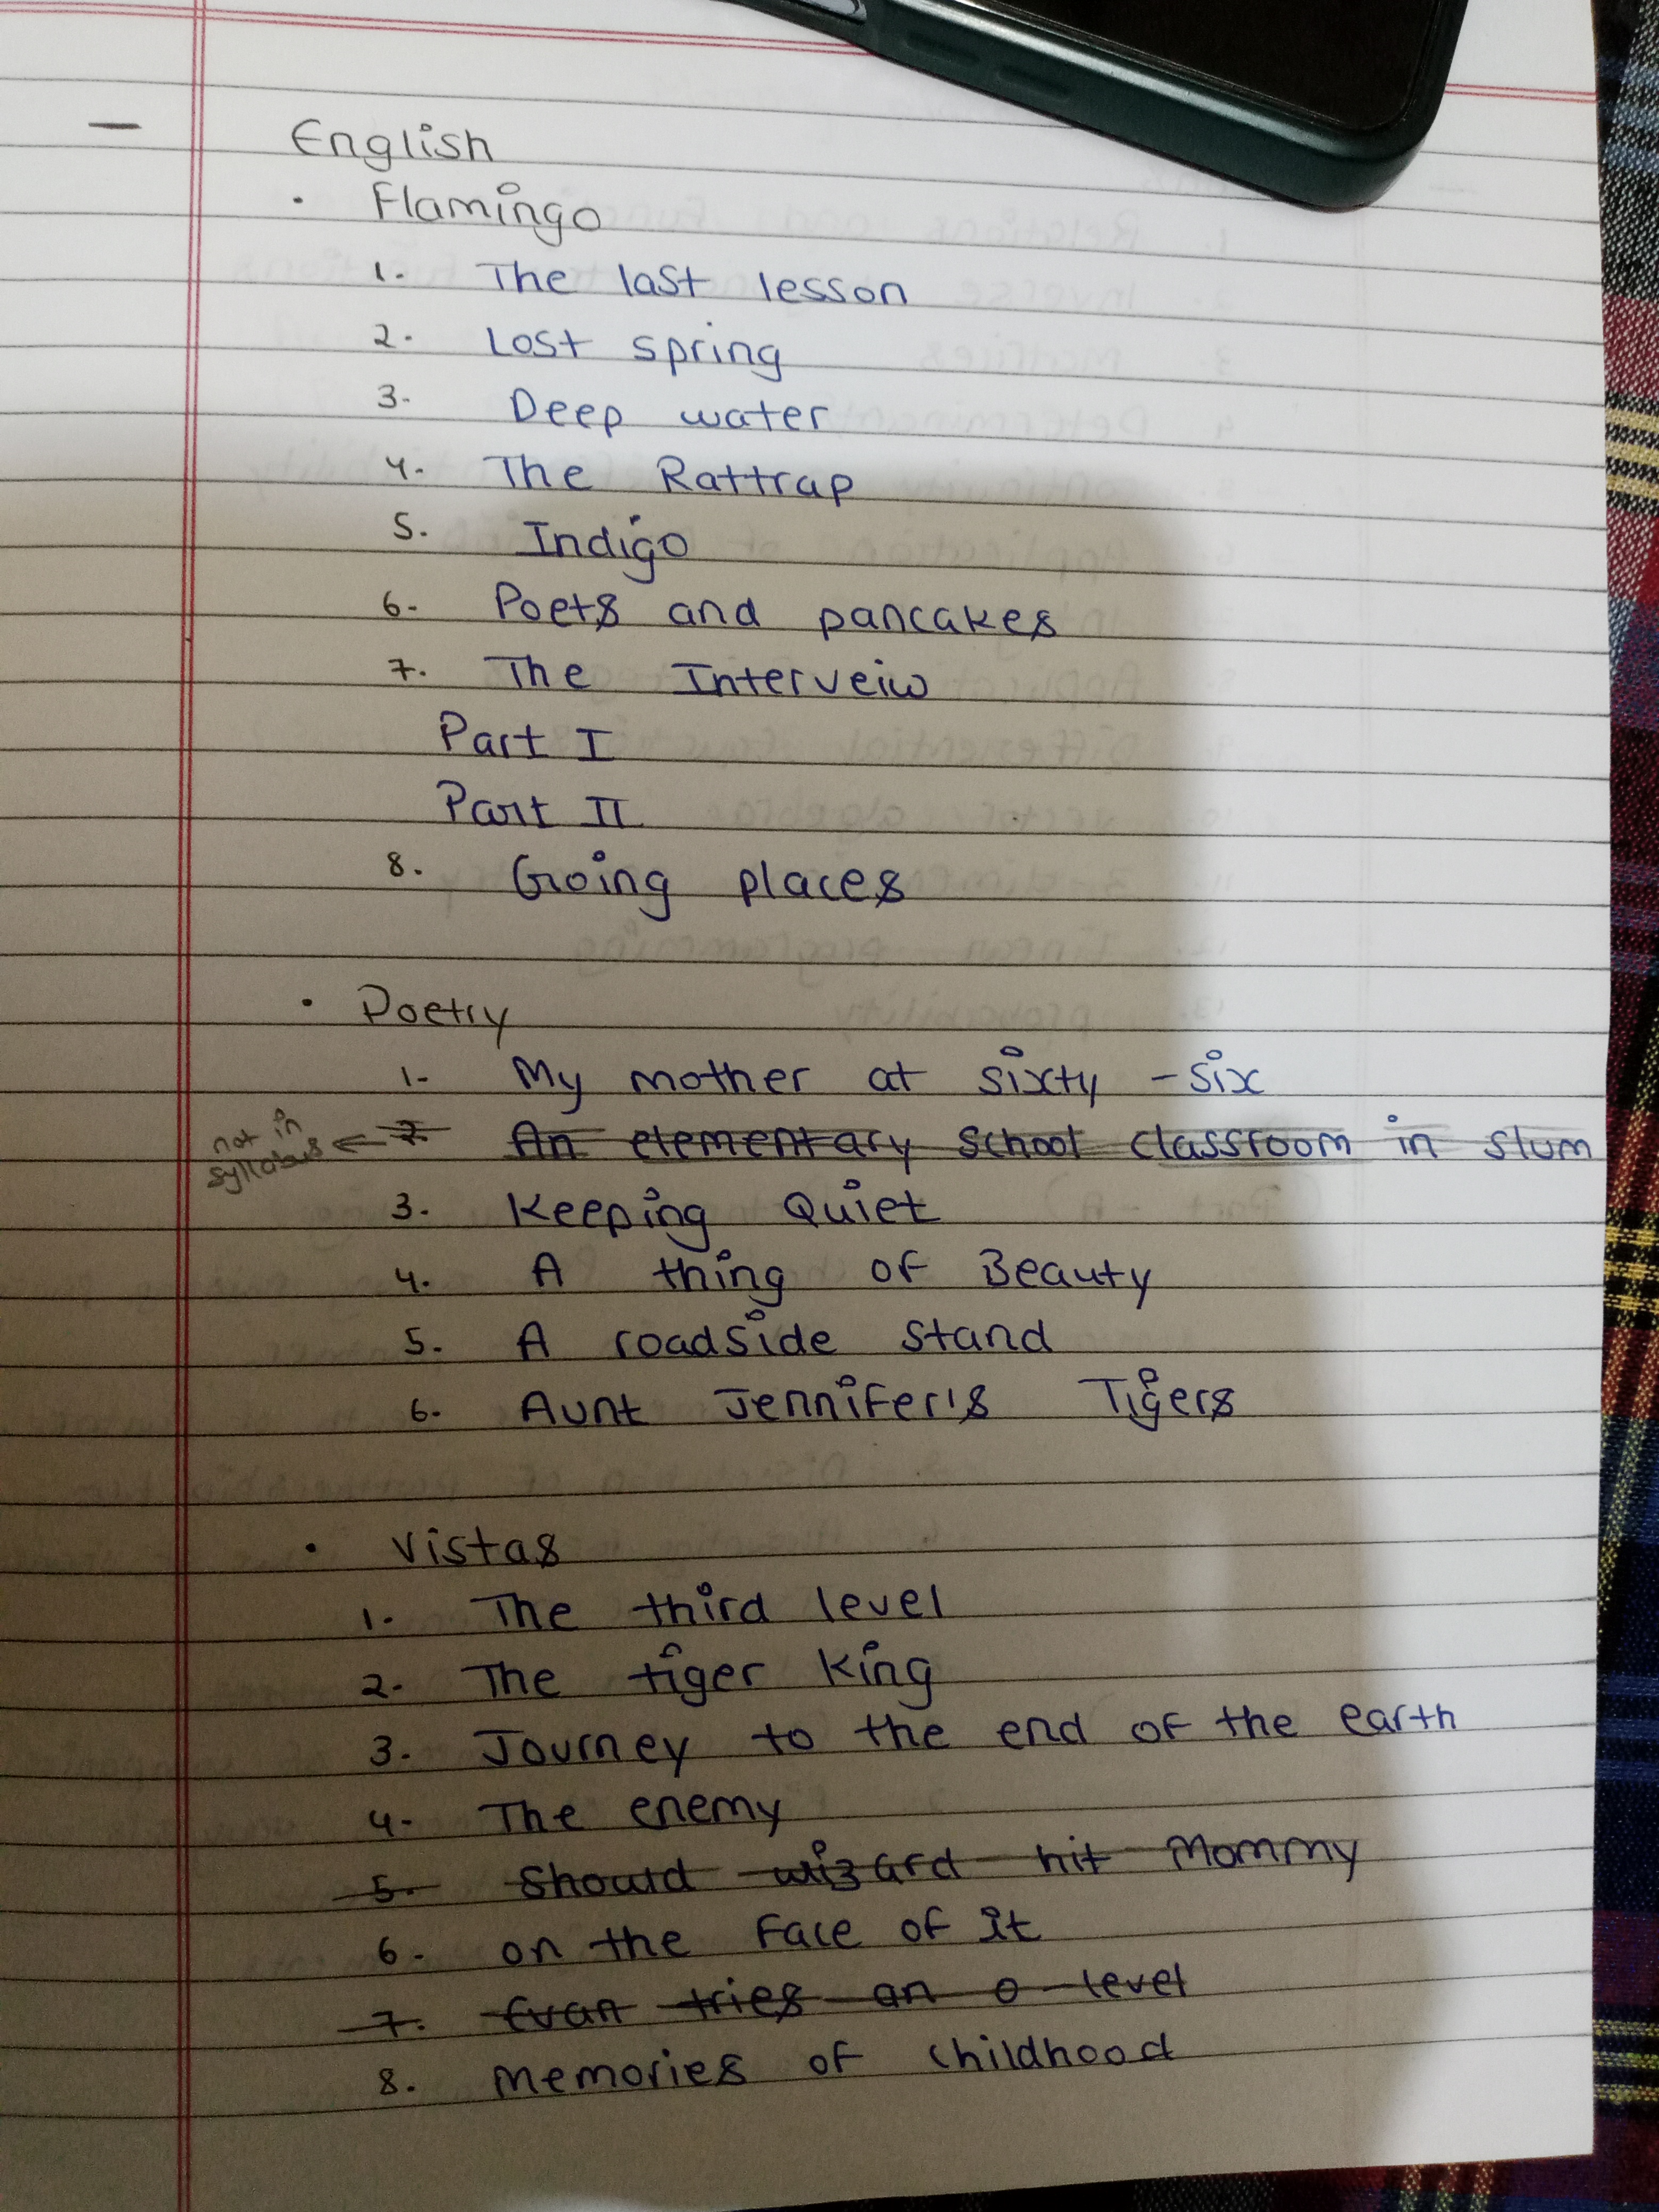 — English
· Flamingo
1. The last lesson
2. Lost spring
3. Deep water
4. The Rattrap
5. Indigo
6. Poets and pancakes
7. The Interveiw
Part I
Part II
8. Going places
· Poetry
1- My mother at sixty - six
not in syllabus ← 2. An elementary school classroom in slum
3. Keeping Quiet
4. A thing of Beauty
5. A roadside stand
6. Aunt Jennifer's Tigers
· Vistas
1. The third level
2. The tiger King
3. Journey to the end of the earth
4. The enemy
5. Should wizard hit Mommy
6. on the Face of it
7. Evan tries an o level
8. Memories of childhood